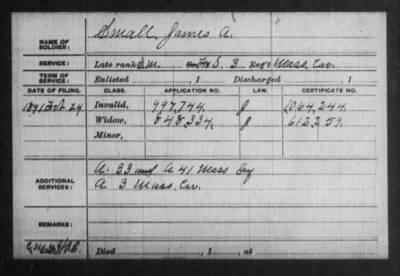 NAME OF SOLDIER: Small, James A.
SERVICE: Late rank S.M. F&S, 3 Reg't Mass. Cav.
TERM OF SERVICE: Enlisted , 1 Discharged , 1
DATE OF FILING. CLASS. APPLICATION NO. LAW. CERTIFICATE NO.
1891 Feb. 24. Invalid, 997,744. 1,064,244.
Widow, 848,334. 612,259.
Minor,
ADDITIONAL SERVICES: A. 33 and A 41 Mass Inf
A. 3 Mass. Cav.
REMARKS:
Died , 1 , at